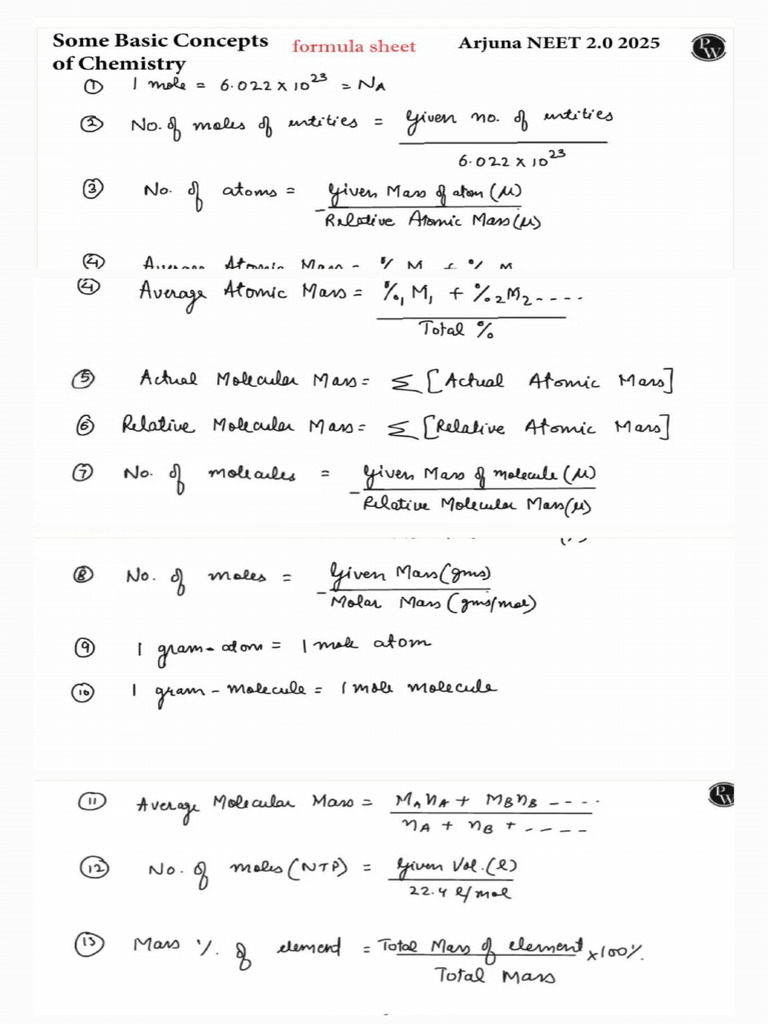 Some Basic Concepts of Chemistry formula sheet Arjuna NEET 2.0 2025
PW
① 1 mole = 6.022 × 10²³ = Nₐ
② No. of moles of entities = Given no. of entities / 6.022 × 10²³
③ No. of atoms = Given Mass of atom (μ) / Relative Atomic Mass (μ)
④ Average Atomic Mass = % M + % M
④ Average Atomic Mass = %₁M₁ + %₂M₂ ---- / Total %
⑤ Actual Molecular Mass = Σ [Actual Atomic Mass]
⑥ Relative Molecular Mass = Σ [Relative Atomic Mass]
⑦ No. of molecules = Given Mass of molecule (μ) / Relative Molecular Mass (μ)
⑧ No. of moles = Given Mass (gms) / Molar Mass (gms/mol)
⑨ 1 gram-atom = 1 mole atom
⑩ 1 gram-molecule = 1 mole molecule
PW
⑪ Average Molecular Mass = M_A n_A + M_B n_B ---- / n_A + n_B + ----
⑫ No. of moles (NTP) = Given Vol. (l) / 22.4 l/mol
⑬ Mass % of element = Total Mass of element / Total Mass × 100%